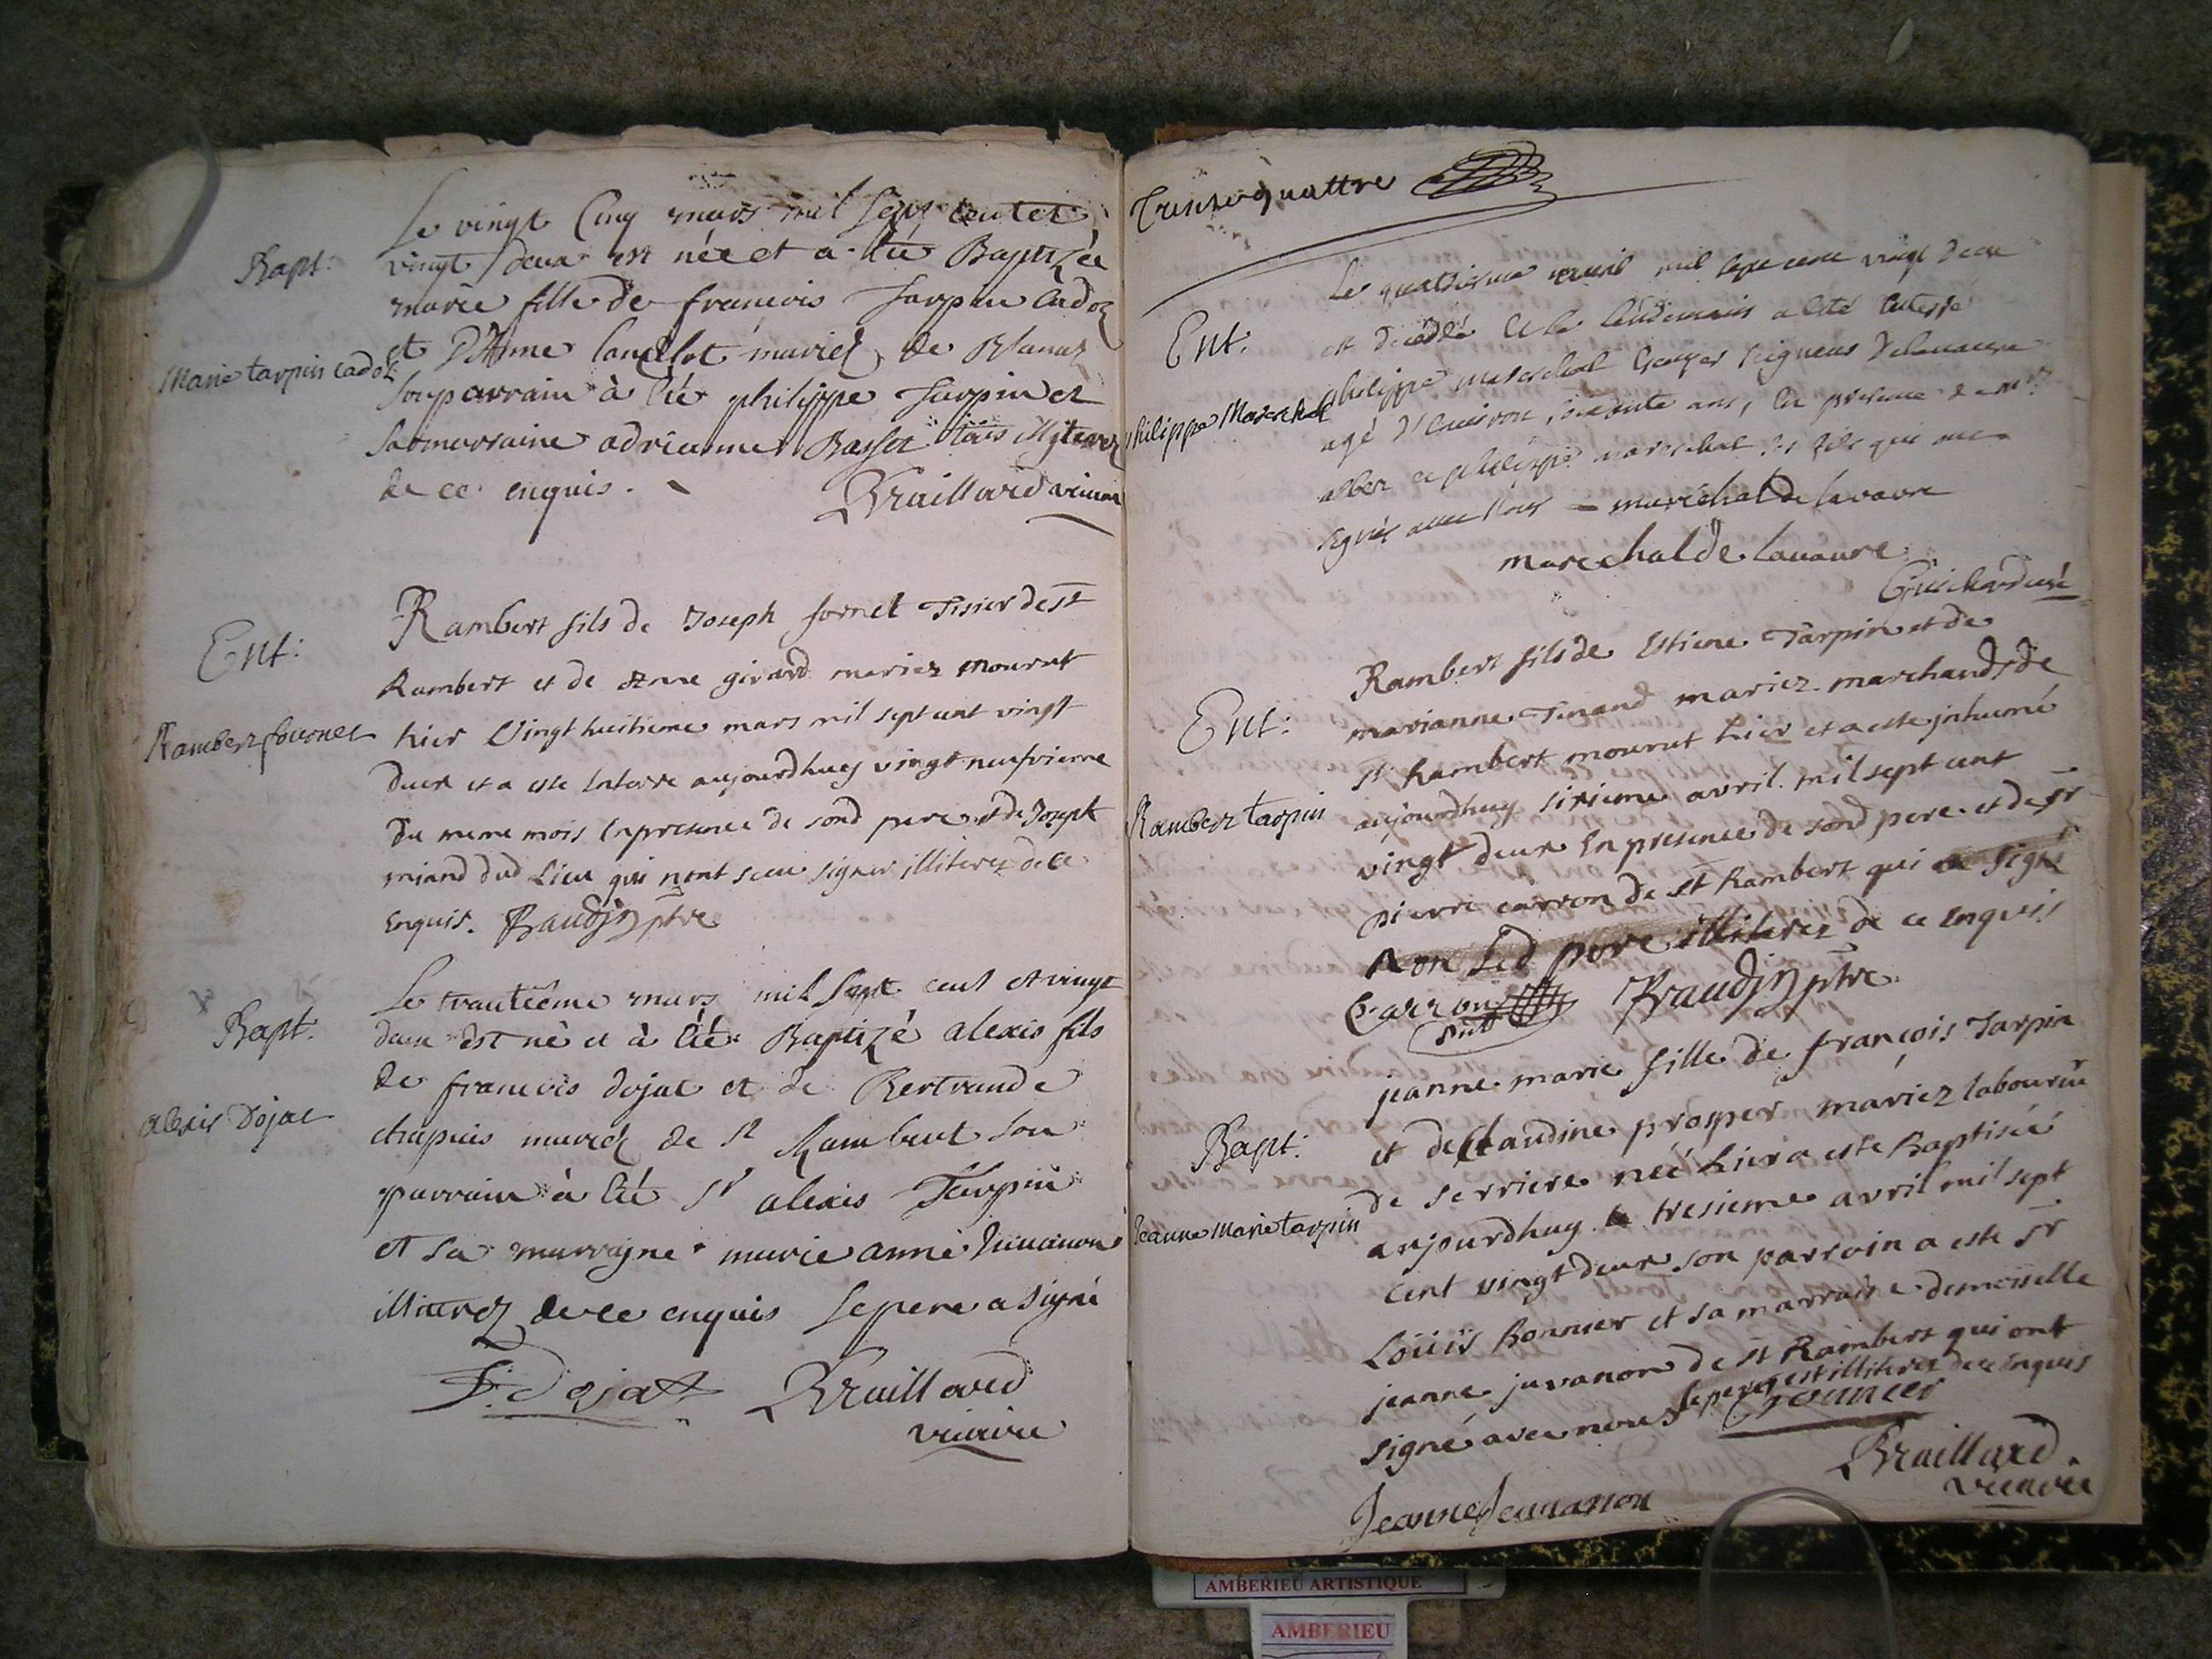 Le vingt Cinq mars mil sept cent et
Bapt: vingt deux est née et a été Baptizée
marie fille de francois Tarpin Cadoz
Marie tarpin Cadoz
et D'Anne Lancelot mariez de Blanaz
son parrain à été philippe Tarpin et
sa marraine adrienne Basset tous illyterez
de ce enquis. Braillard vicaire
Rambert fils de Joseph fornet Tisier de st
Ent: Rambert et de Anne girard mariez mourut
Rambert fournet
hier Vingt huitieme mars mil sept cent vingt
deux et a este Enterre aujourdhuy vingt neufvieme
du meme mois En presence de sond pere et de Joseph
miand dud Lieu qui n'ont sceu signer illiterez de ce
Enquis. Baudin ptre
Le trantiême mars mil sept cent et vingt
Bapt: deux est né et à été Baptizé alexis fils
de francois dojat et de Bertrande
Alexis Dojat
chapuis mariez de st Rambert son
parrain à été sr alexis Tarpin
et sa marragne marie anne Juvanon
illiterez de ce enquis le pere a signé
F. Dojat Braillard
vicaire
Trente quattre
Le quatrieme avril mil sept cent vingt deux
Ent: est décédé et le lendemain a été enterré
philippe Mareschal
philippe mareschal Ecuyer seigneur Delavavre
agé d'environ soixante ans, en presence de mrs
alber et philippe mareschal ses fils qui ont
signés avec Nous maréchal de lavavre
marechal de lavavre
Guichard curé
Rambert fils de Estiene Tarpin et de
Ent: marianne Tenand mariez marchands de
st Rambert mourut hier et a este jnhumé
Rambert tarpin
aujourdhuy sixieme avril mil sept cent
vingt deux En presence de sond pere et de sr
pierre carron de st Rambert qui a signé
non Led pere illiterez de ce enquis
Carron Baudin ptre
jeanne marie fille de françois Tarpin
Bapt: et de Claudine prosper mariez laboureur
de serriere neé hier a este Baptiseé
Jeanne Marie tarpin
aujourdhuy le tresieme avril mil sept
cent vingt deux son parroin a este sr
Loüis Bonnier et sa marraine demoiselle
jeanne juvanon de st Rambert qui ont
signé avec nous le pere est illiterez de ce Enquis
Braillard
vicaire
Jeanne Jeuvanon
AMBERIEU ARTISTIQUE
AMBERIEU